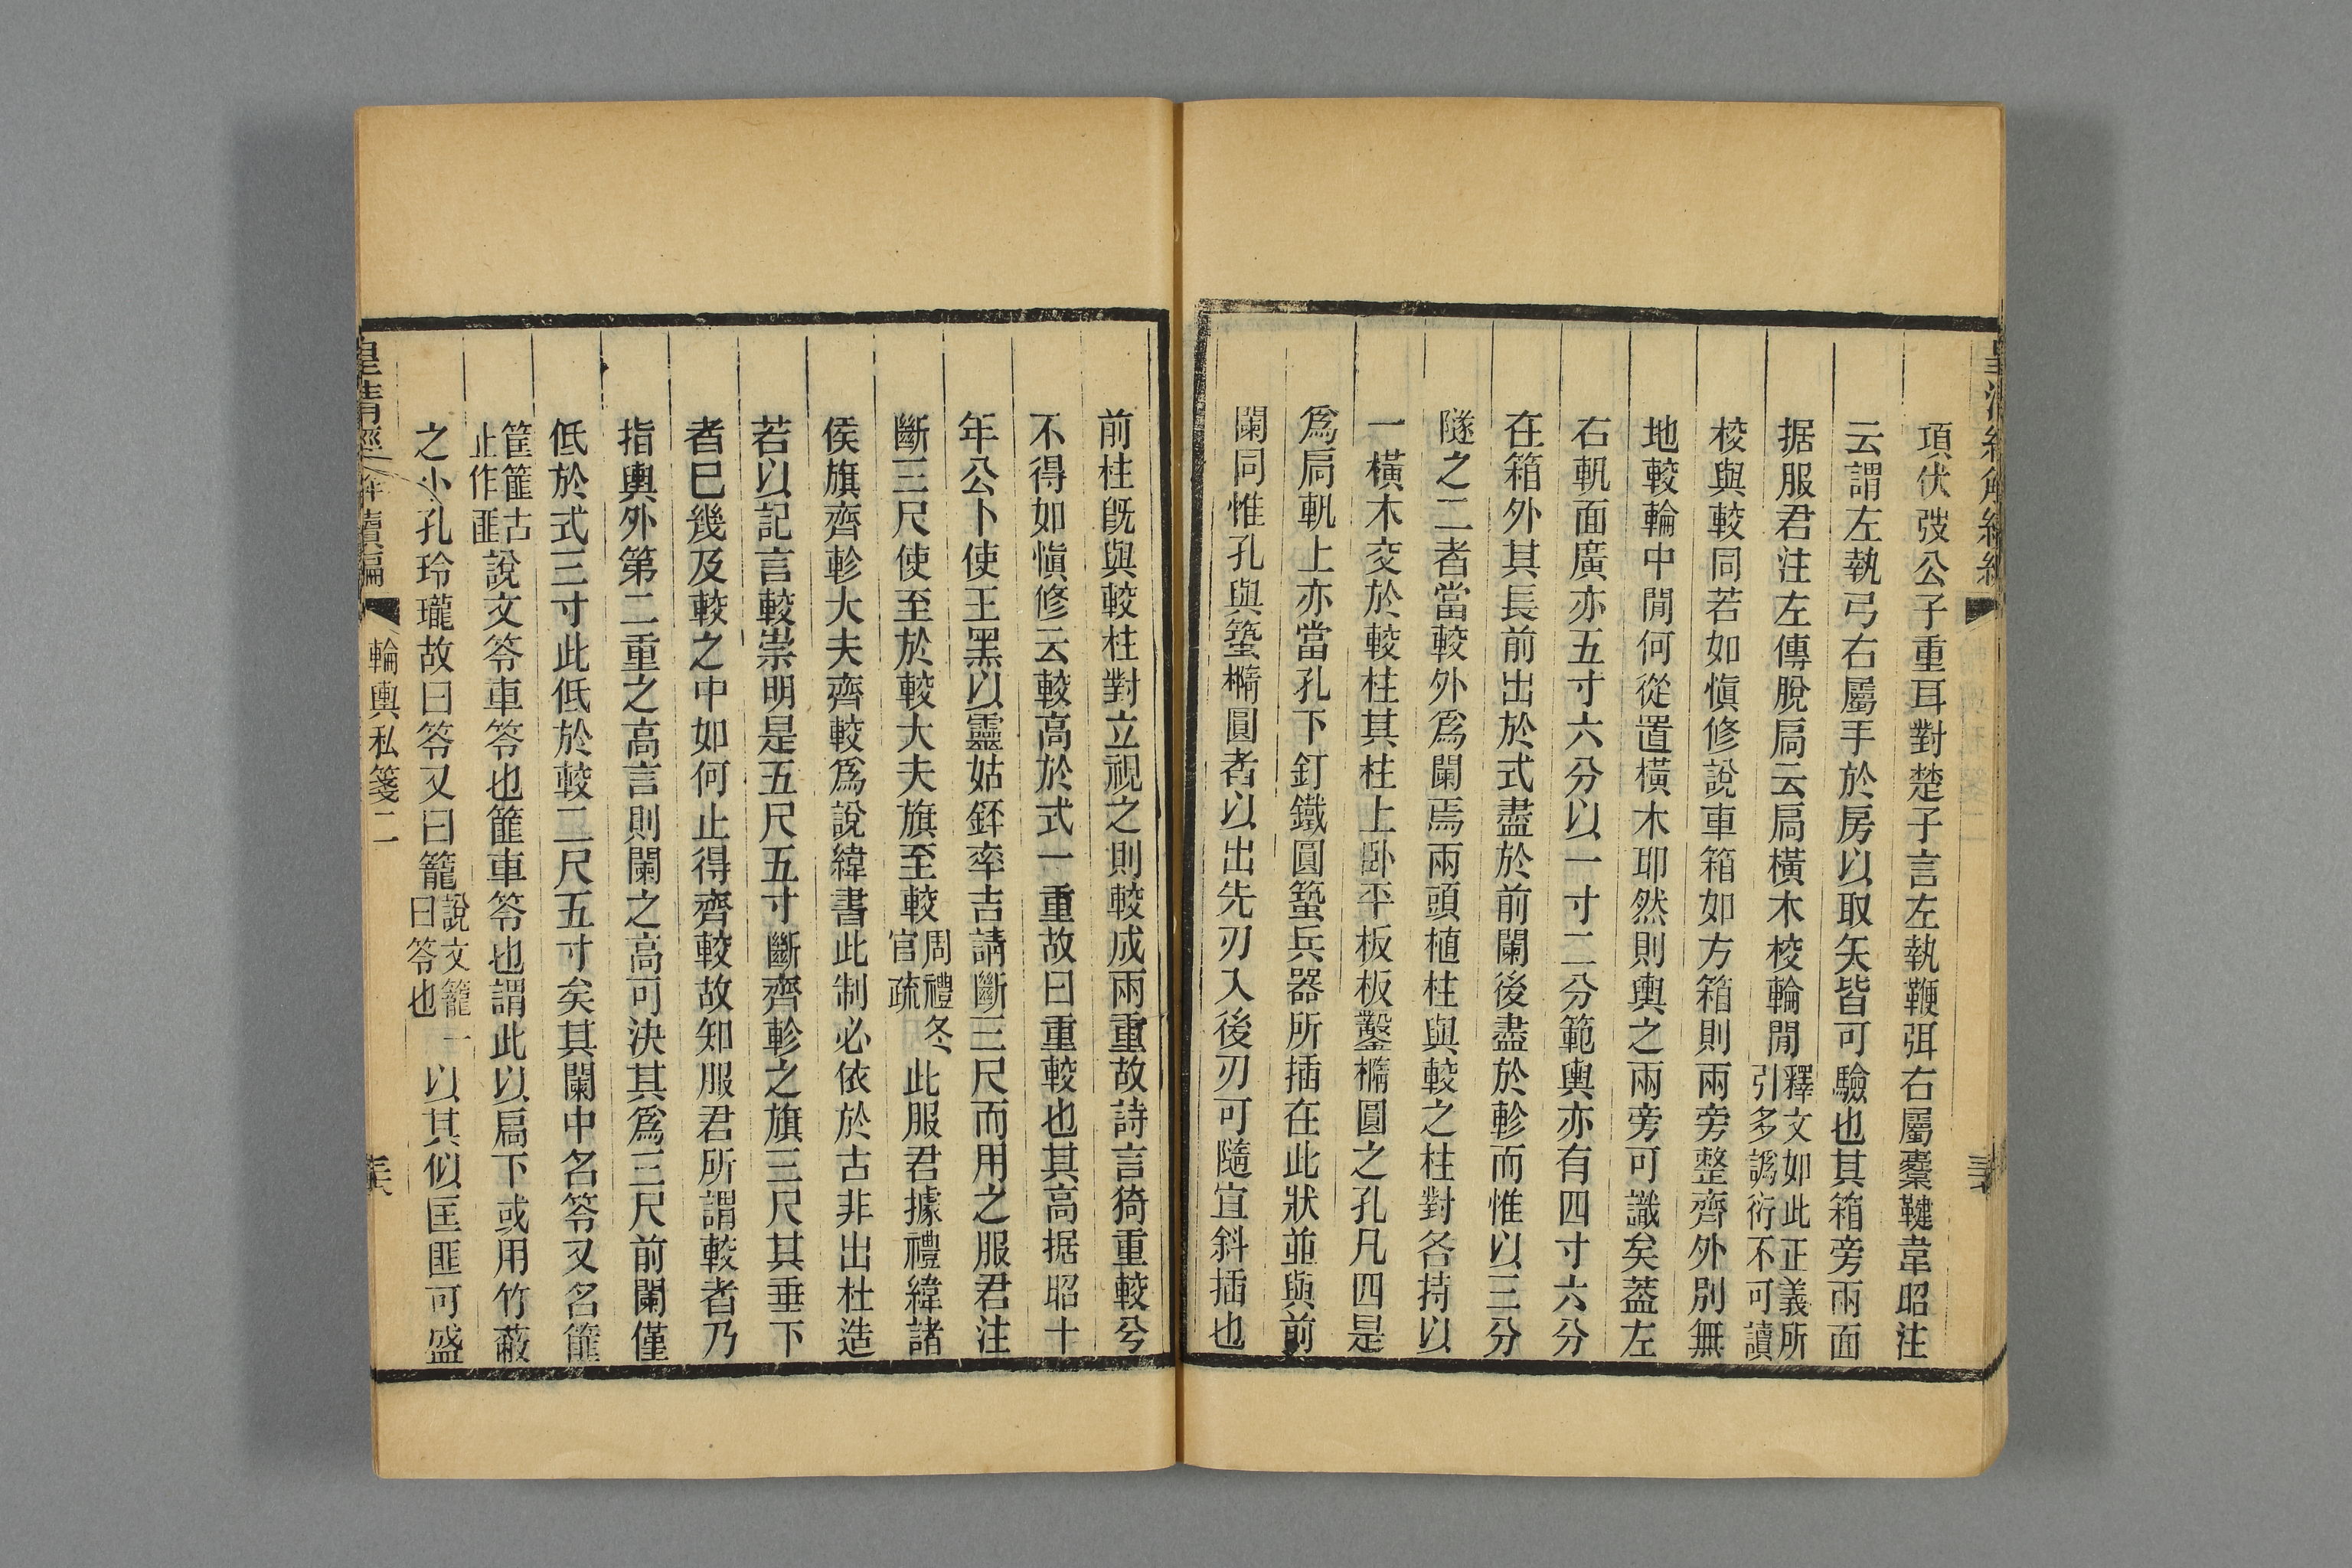 項伏弢公子重耳對楚子言左執鞭弭右屬櫜鞬韋昭注
云謂左執弓右屬手於房以取矢皆可驗也其箱旁兩面
据服君注左傳脫扃云扃橫木校輪閒釋文如此正義所引多譌衍不可讀
校與較同若如愼修說車箱如方箱則兩旁整齊外別無
地較輪中閒何從置橫木耶然則輿之兩旁可識矣葢左
右軓面廣亦五寸六分以一寸二分範輿亦有四寸六分
在箱外其長前出於式盡於前闌後盡於軫而惟以三分
隧之二者當較外爲闌焉兩頭植柱與較之柱對各持以
一橫木交於較柱其柱上臥平板板鑿橢圓之孔凡四是
爲扃軓上亦當孔下釘鐵圓蠥兵器所插在此狀並與前
闌同惟孔與蠥橢圓者以出先刃入後刃可隨宜斜插也
前柱旣與較柱對立視之則較成兩重故詩言猗重較兮
不得如愼修云較高於式一重故曰重較也其高据昭十
年公卜使王黑以靈姑銔率吉請斷三尺而用之服君注
斷三尺使至於較大夫旗至較周禮冬官疏此服君據禮緯諸
侯旗齊軫大夫齊較爲說緯書此制必依於古非出杜造
若以記言較崇明是五尺五寸斷齊軫之旗三尺其垂下
者巳幾及較之中如何止得齊較故知服君所謂較者乃
指輿外第二重之高言則闌之高可決其爲三尺前闌僅
低於式三寸此低於較二尺五寸矣其闌中名笭又名篚
筐篚古止作匪說文笭車笭也篚車笭也謂此以扃下或用竹蔽
之小孔玲瓏故曰笭又曰籠說文籠一曰笭也以其似匡匪可盛
皇淸經解續編
輪輿私箋二